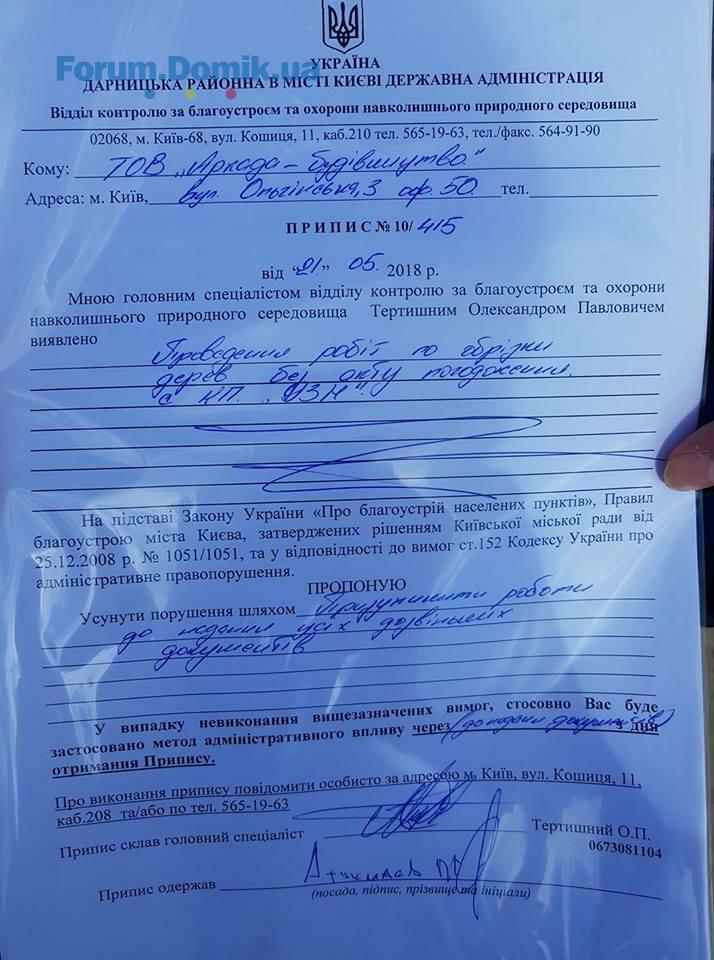 УКРАЇНА
Forum.Domik.ua
ДАРНИЦЬКА РАЙОННА В МІСТІ КИЄВІ ДЕРЖАВНА АДМІНІСТРАЦІЯ
Відділ контролю за благоустроєм та охорони навколишнього природного середовища
02068, м. Київ-68, вул. Кошиця, 11, каб.210 тел. 565-19-63, тел./факс. 564-91-90
Кому: ТОВ "Аркада-будівництво."
Адреса: м. Київ, вул. Ольгінська, 3 оф. 50. тел.
ПРИПИС № 10/ 415
від "21" 05. 2018 р.
Мною головним спеціалістом відділу контролю за благоустроєм та охорони
навколишнього природного середовища Тертишним Олександром Павловичем
виявлено
Проведення робіт по обрізки
дерев без акту погодження.
с КП. "УЗН".
На підставі Закону України «Про благоустрій населених пунктів», Правил
благоустрою міста Києва, затверджених рішенням Київської міської ради від
25.12.2008 р. № 1051/1051, та у відповідності до вимог ст.152 Кодексу України про
адміністративне правопорушення.
ПРОПОНУЮ
Усунути порушення шляхом Призупинити роботи
до надання усіх дозвільних
документів
У випадку невиконання вищезазначених вимог, стосовно Вас буде
застосовано метод адміністративного впливу через (до подачі документів) з дня
отримання Припису.
Про виконання припису повідомити особисто за адресою м. Київ, вул. Кошиця, 11,
каб.208 та/або по тел. 565-19-63
Припис склав головний спеціаліст Тертишний О.П.
0673081104
Припис одержав
(посада, підпис, прізвище та ініціали)